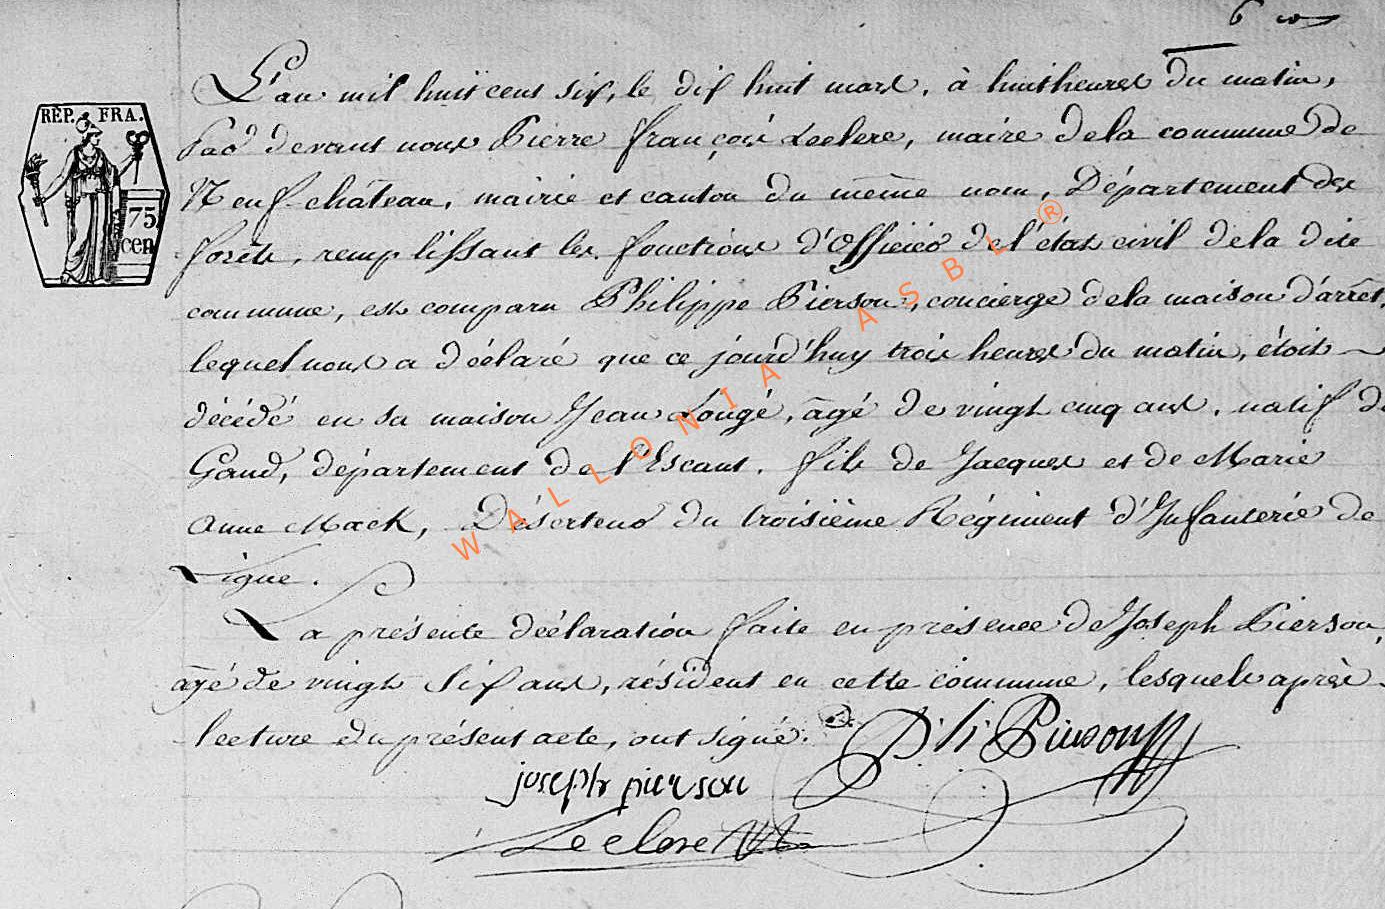 6
L'an mil huit cent six, le dix huit mars, à huit heures du matin,
Par devant nous Pierre françois Leclere, maire de la commune de
Neufchâteau, mairie et canton du même nom, Département des
forêts, remplissant les fonctions d'Officier de l'état civil de la dite
commune, est comparu Philippe Pierson, concierge de la maison d'arrêt,
lequel nous a déclaré que ce jourd'huy trois heures du matin, étoit
décédé en sa maison Jean Longé, âgé de vingt cinq ans, natif de
Gand, département de l'Escaut, fils de Jacques et de Marie
Anne Mack, Déserteur du troisième Régiment d'Infanterie de
Ligne.
La présente déclaration faite en présence de Joseph Pierson,
âgé de vingt six ans, résident en cette commune, lesquels après
lecture du présent acte, ont signé.
Pierson
joseph pierson
Leclere
RÉP. FRA.
75
cen
WALLONIA ASBL ®